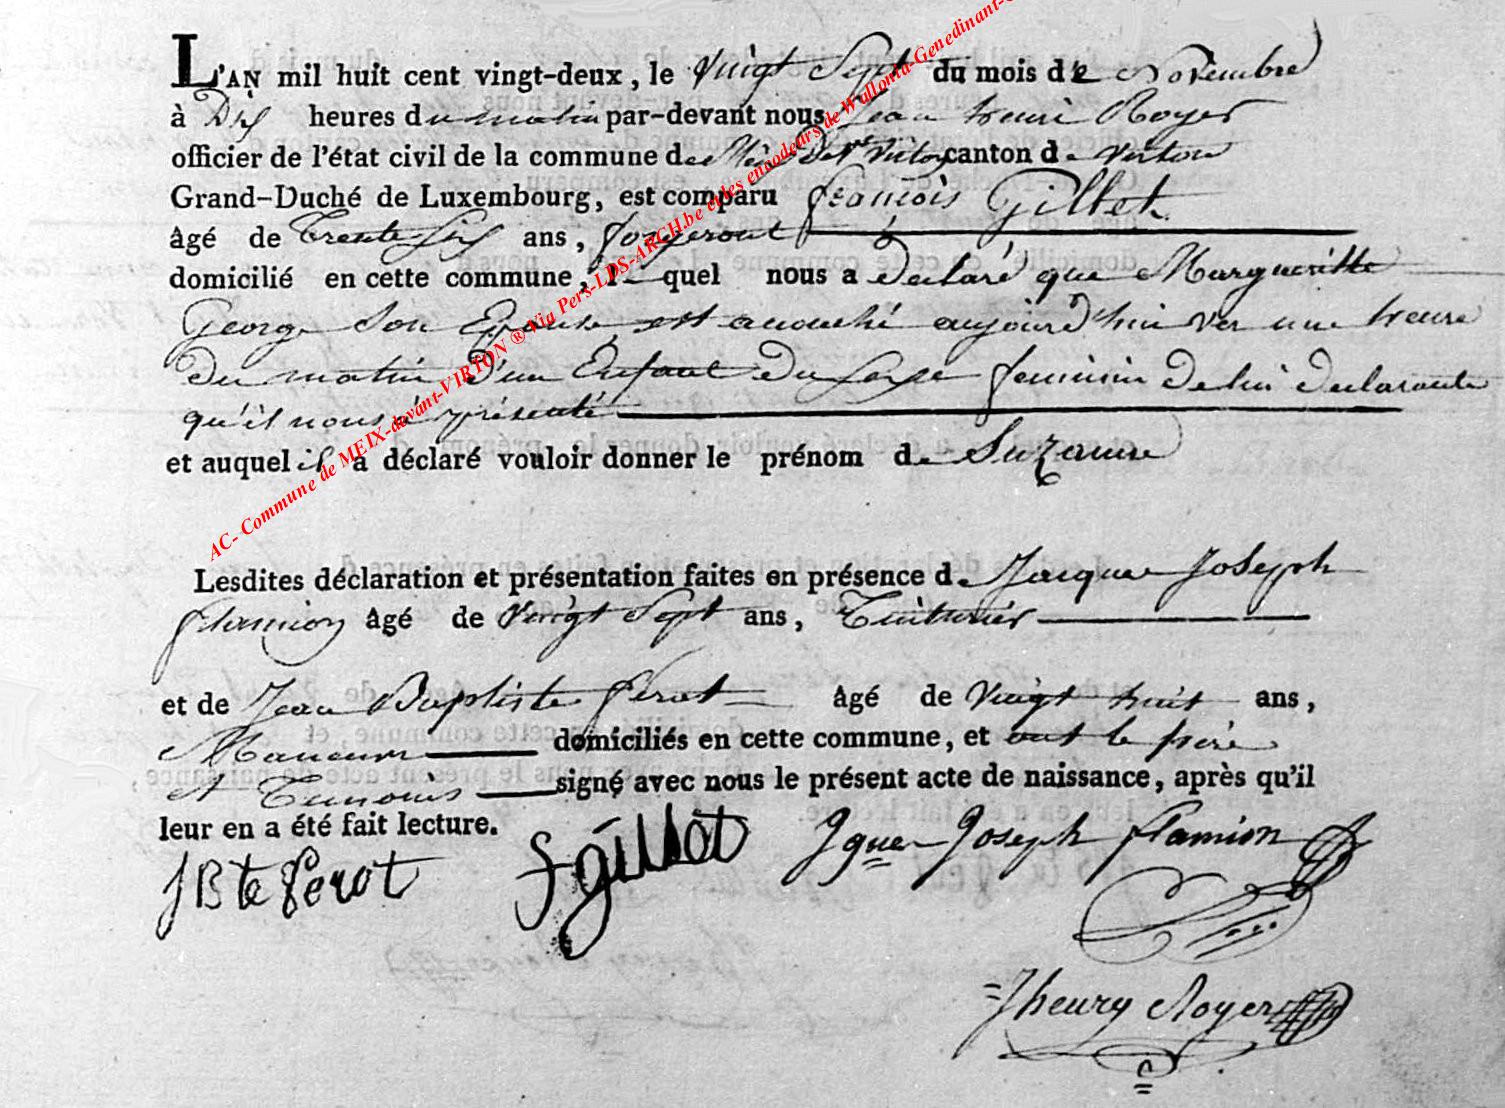 L'AN mil huit cent vingt-deux, le Vingt Sept du mois de Novembre
à Dix heures du matin par-devant nous Jean henri Royer
officier de l'état civil de la commune de Meix dt Virton canton de Virton
Grand-Duché de Luxembourg, est comparu françois Gillet
âgé de trente six ans, forgeront
domicilié en cette commune, lequel nous a declaré que Margueritte
George Son Epouse est acouché aujourd'hui ver une heure
du matin d'un Enfant du Sexe feminin de lui declarante
qu'il nous a présenté
et auquel il a déclaré vouloir donner le prénom de Suzanne
Lesdites déclaration et présentation faites en présence de Jacques Joseph
flamion âgé de Vingt Sept ans, Tinturier
et de Jean Baptiste Perot âgé de Vingt huit ans,
Maneuv domiciliés en cette commune, et ont le père
et Temoins signé avec nous le présent acte de naissance, après qu'il
leur en a été fait lecture.
JBte Perot f gillet Jques Joseph flamion
Jhenry Royer
AC- Commune de MEIX-devant-VIRTON ® Via Pers-LDS-ARCH.be et les encodeurs de Wallonia-Genedinant-